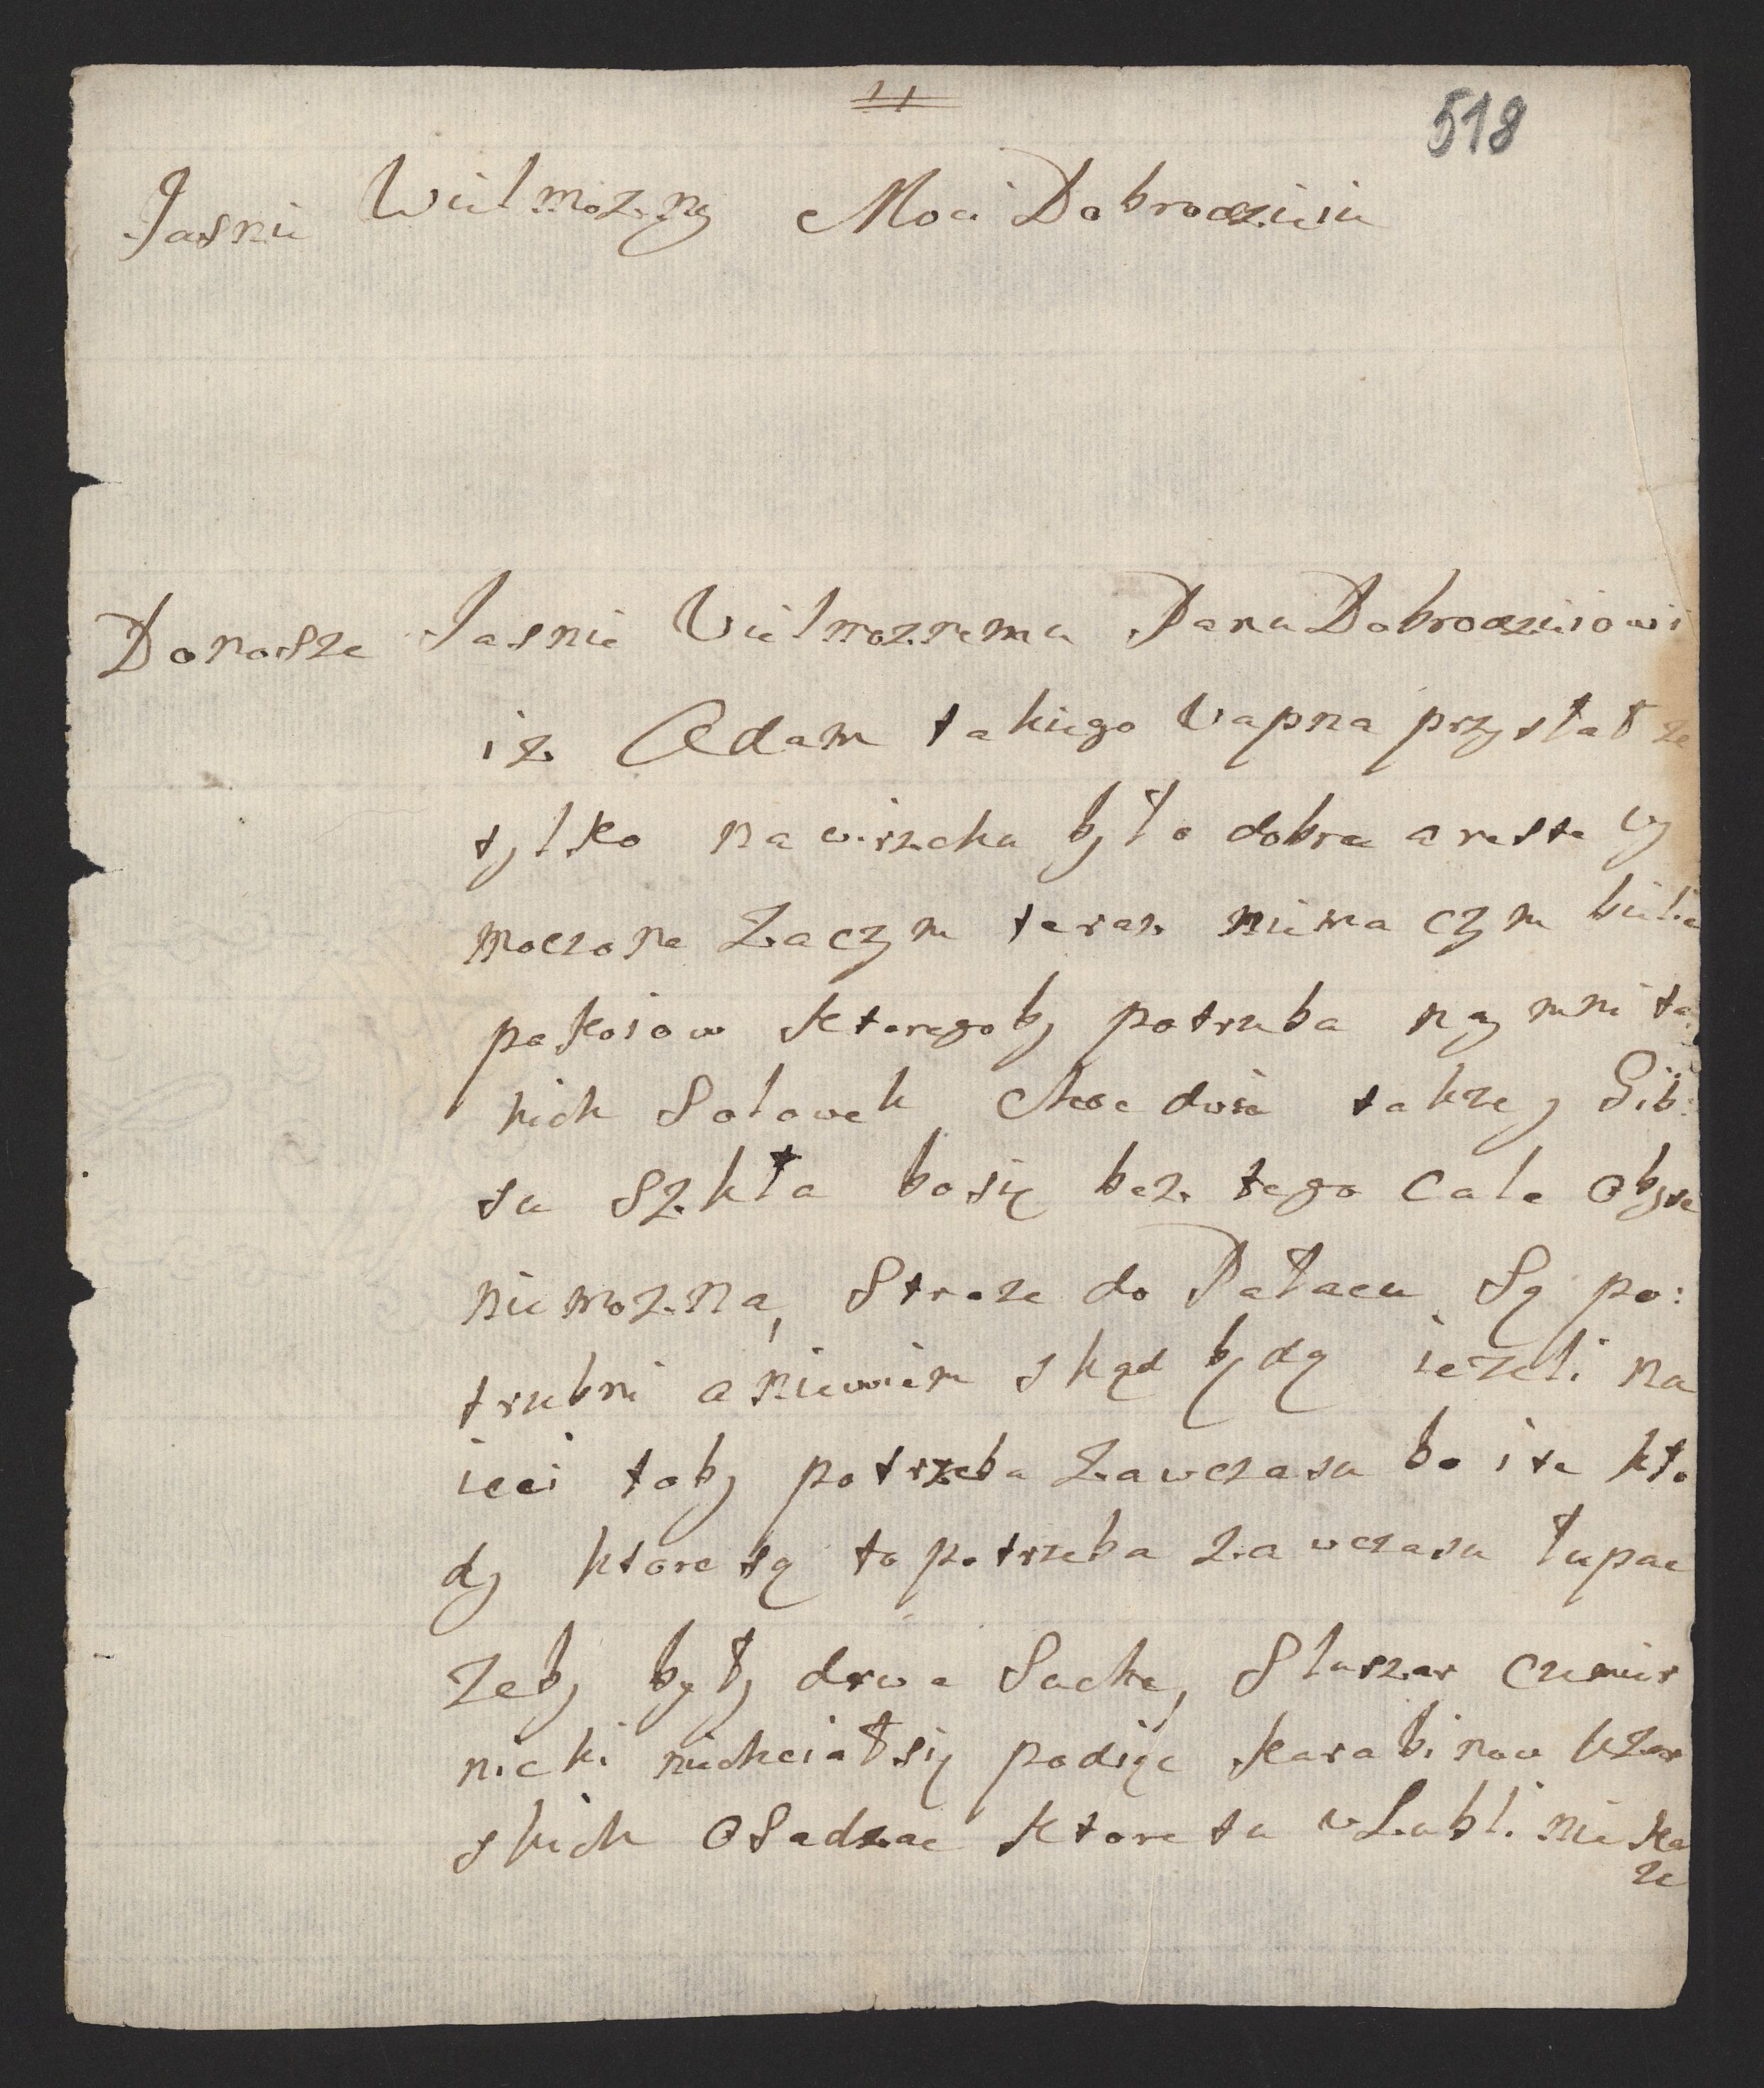 11
518
Jasnie Wielmozny Moci Dobrodzieiu
Donosze Jasnie Vielmoznemu Panu Dobrodzieiowi
iz Adam takiego Vapna przysłał ze
tylko na wierzchu było dobre a reste wy
moczone Zaczym teraz niema czym bielic
pokoiow ktoregoby potrzeba naymni ta
kich Solowek choc dwie takze y Gib:
su Szkła bosię bez tego cale obyse
niemozna, Stroze do Pałacu Są po:
trzebni a niewiem skąd będą iezeli na
ięci toby potrzeba Zawczasu bo i te kło
dy ktore są to potrzeba zawczasu łupac
zeby były drwa Suche, Slusarz czemier
nicki niechciał się podiąc karabinow Uzar
skich Osadzac ktore tu w Lubli. nie ka
ze